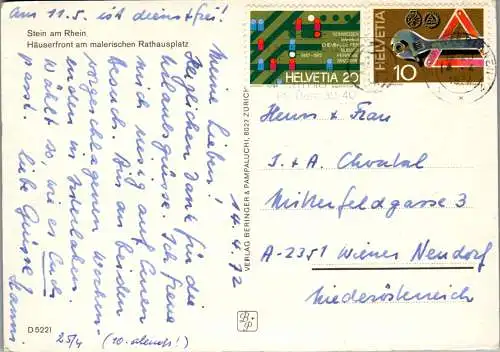 am 11.5. ist dienstfrei!
Stein am Rhein
Häuserfront am malerischen Rathausplatz
14.4.72
Meine Lieben!
Herzlichen Dank für die
Urlaubsgrüsse. Ich freue
mich riesig auf Euren
Besuch. Bin an beiden
vorgeschlagenen Wochen-
enden in
Wählt so, wie es Euch
passt. Liebe Grüsse
Hanni
25/4 (10. abends!)
D 5221
VERLAG BERINGER & PAMPALUCHI, 8027 ZÜRICH
B+P
HELVETIA 20
HELVETIA
10
Herrn & Frau
I. + A. Chvatal
Mitterfeldgasse 3
A-2351 Wiener Neudorf
Niederösterreich